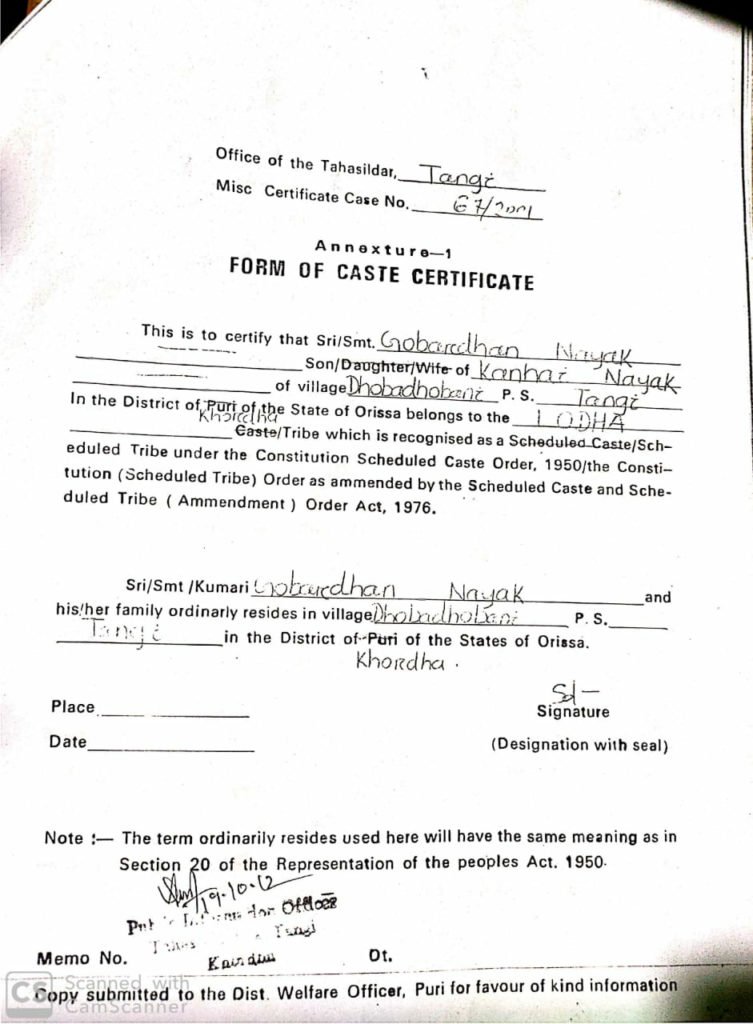 Office of the Tahasildar, Tangi
Misc Certificate Case No. 67/2001
Annexture—1
FORM OF CASTE CERTIFICATE
This is to certify that Sri/Smt. Gobardhan Nayak
Son/Daughter/Wife of Kanhai Nayak
of village Dhobadhobani P. S. Tangi
In the District of Puri of the State of Orissa belongs to the LODHA
Khordha
Caste/Tribe which is recognised as a Scheduled Caste/Sch-
eduled Tribe under the Constitution Scheduled Caste Order, 1950/the Consti-
tution (Scheduled Tribe) Order as ammended by the Scheduled Caste and Sche-
duled Tribe ( Ammendment ) Order Act, 1976.
Sri/Smt /Kumari Gobardhan Nayak and
his/her family ordinarly resides in village Dhobadhobani P. S.
Tangi in the District of Puri of the States of Orissa.
Khordha.
Sd-
Place Signature
Date (Designation with seal)
Note :— The term ordinarily resides used here will have the same meaning as in
Section 20 of the Representation of the peoples Act. 1950.
19-10-12
Officer
Tangi
Memo No. Dt.
Copy submitted to the Dist. Welfare Officer, Puri for favour of kind information
CS Scanned with
CamScanner